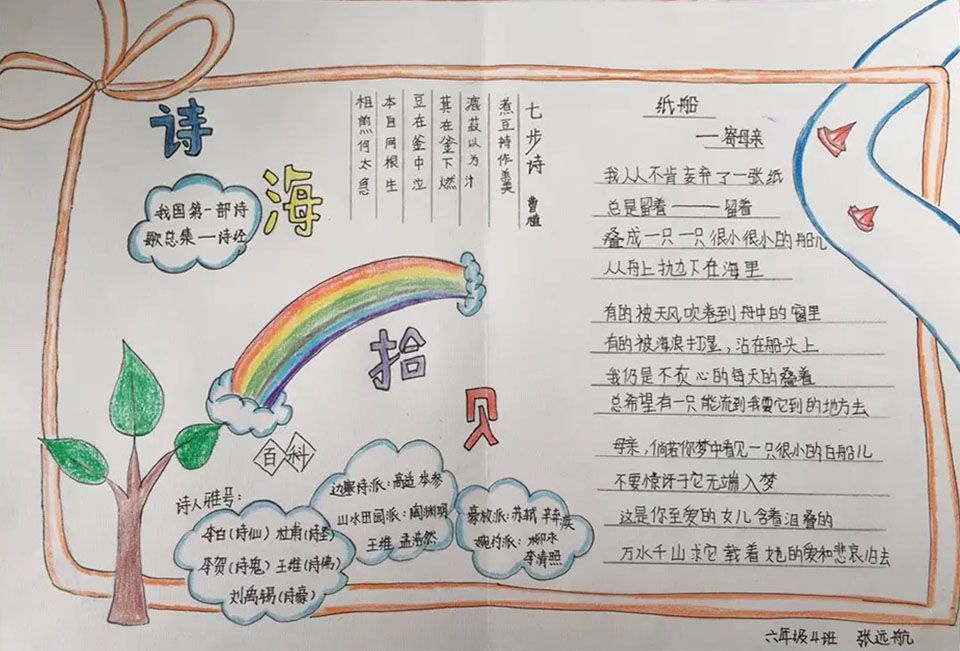 诗
海
拾
贝
我国第一部诗
歌总集—诗经
七步诗 曹植
煮豆持作羹
漉菽以为汁
萁在釜下燃
豆在釜中泣
本自同根生
相煎何太急
纸船
—寄母亲
我从不肯妄弃了一张纸
总是留着——留着
叠成一只一只很小很小的船儿
从舟上抛下在海里
有的被天风吹卷到舟中的窗里
有的被海浪打湿，沾在船头上
我仍是不灰心的每天的叠着
总希望有一只能流到我要它到的地方去
母亲，倘若你梦中看见一只很小的白船儿
不要惊讶于它无端入梦
这是你至爱的女儿含着泪叠的
万水千山求它载着她的爱和悲哀归去
百科
诗人雅号：
李白(诗仙) 杜甫(诗圣)
李贺(诗鬼) 王维(诗佛)
刘禹锡(诗豪)
边塞诗派：高适 岑参
山水田园派：陶渊明
王维 孟浩然
豪放派：苏轼 辛弃疾
婉约派：柳永
李清照
六年级4班 张远航